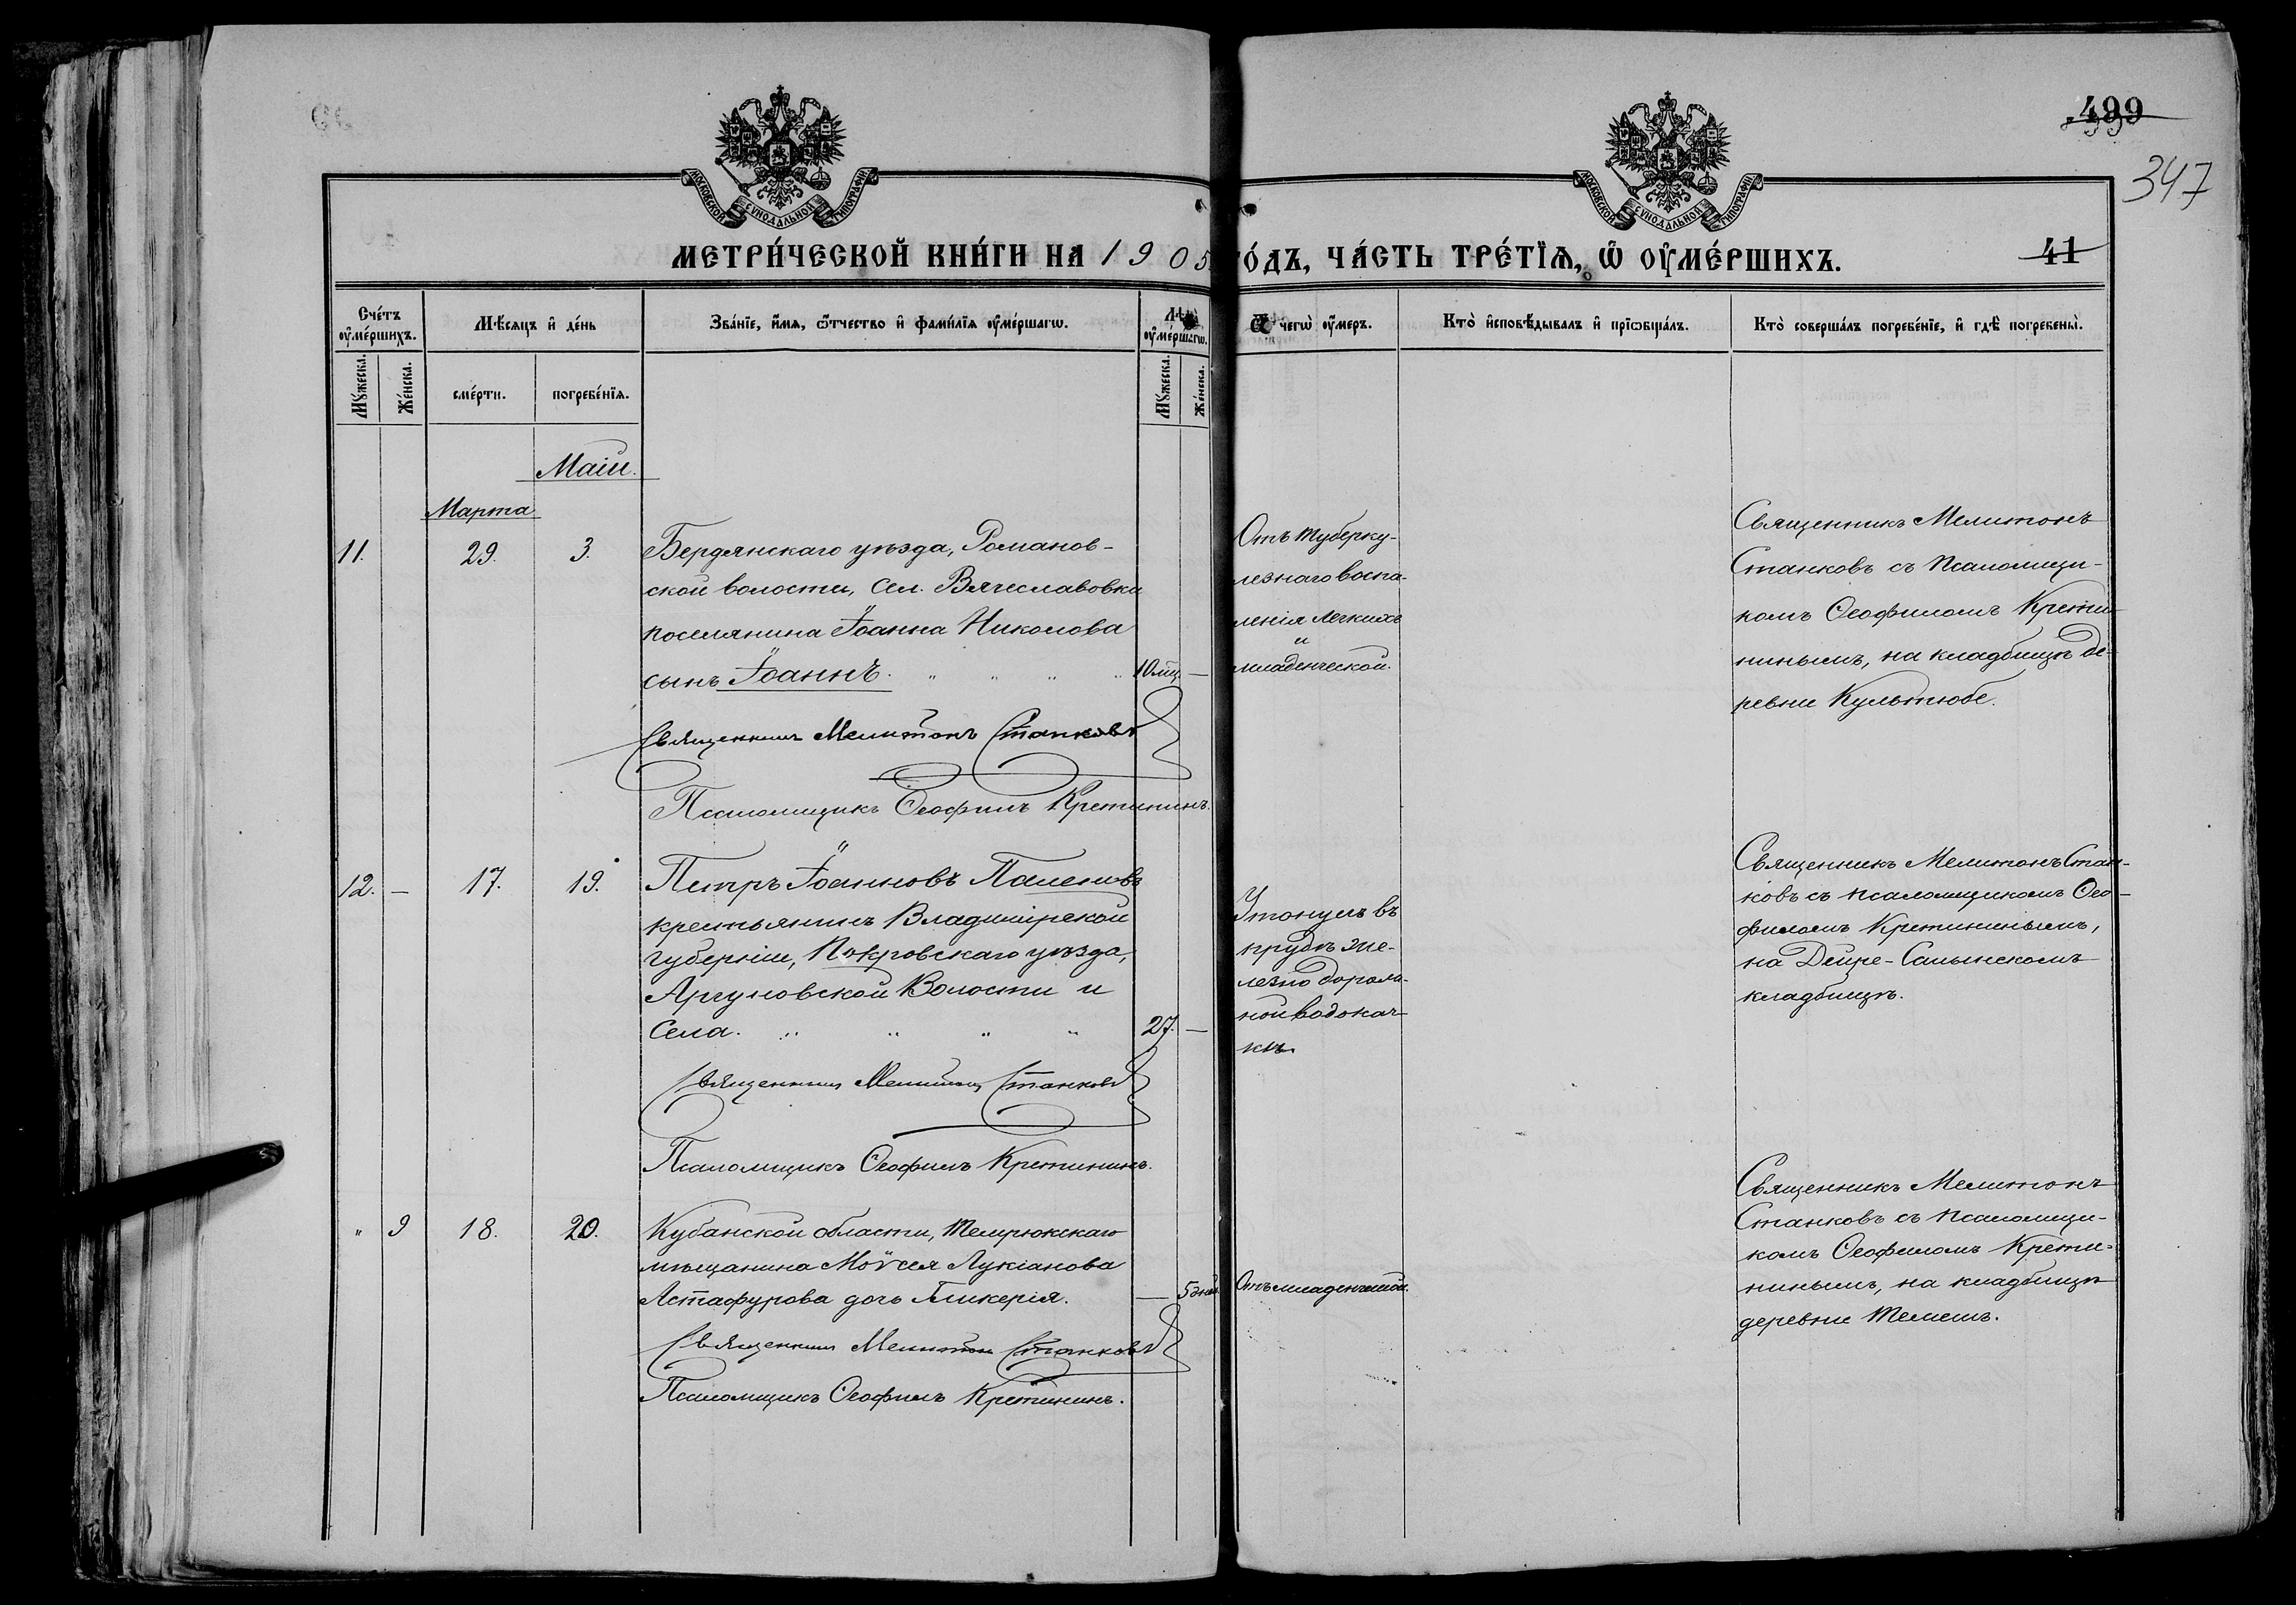 499
347
МОСКОВСКОЙ СѴНОДАЛЬНОЙ ТИПОГРАФІИ
МОСКОВСКОЙ СѴНОДАЛЬНОЙ ТИПОГРАФІИ
МЕТРИ́ЧЕСКОЙ КНИ́ГИ НА 1905
ГО́ДЪ, ЧА́СТЬ ТРЕ́ТЇѦ, Ѡ҆ ОУ҆МЕ́РШИХЪ.
41
Сче́тъ оу҆ме́ршихъ.
Мѣ́сѧцъ и҆ де́нь
Зва́нїе, и҆́мѧ, ѻ҆́тчество и҆ фами́лїѧ оу҆ме́ршагѡ.
Лѣ́та оу҆ме́ршагѡ.
Ѿ чегѡ̀ оу҆́меръ.
Кто̀ и҆сповѣ́дывалъ и҆ прїѡбща́лъ.
Кто̀ соверша́лъ погребе́нїе, и҆ гдѣ̀ погребены̀.
Мꙋ́жеска.
Же́нска.
сме́рти.
погребе́нїѧ.
Мꙋ́жеска.
Же́нска.
Маій.
Марта
11.
29.
3.
Бердянскаго уѣзда, Романов-
ской волости, сел. Вячеславовки
поселянина Іоанна Николова
сынъ Іоаннъ. " " " "
10 мц. —
Священникъ Мелитонъ Станковъ
Псаломщикъ Ѳеофилъ Кретининъ.
Отъ туберку-
лезнаго воспа-
ленія легкихъ
и
младенческой.
Священникъ Мелитонъ
Станковъ съ псаломщи-
комъ Ѳеофиломъ Крети-
нинымъ, на кладбищѣ де-
ревни Культюбе.
12. —
17.
19.
Петръ Іоанновъ
крестьянинъ Владимірской
губерніи, Покровскаго уѣзда,
Аргуновской Волости и
Села. " " " "
27. —
Священникъ Мелитонъ Станковъ
Псаломщикъ Ѳеофилъ Кретининъ.
Утонулъ въ
прудѣ же-
лезно дорож-
ной водокач-
кѣ.
Священникъ Мелитонъ Стан-
ковъ съ псаломщикомъ Ѳео-
филомъ Кретининымъ,
на Джире-Салынскомъ
кладбищѣ.
" 9
18.
20.
Кубанской области, Темрюкскаго
мѣщанина Моѵсея Лукіанова
Астафурова дочь Гликерія.
— 5 дней
Священникъ Мелитонъ Станковъ
Псаломщикъ Ѳеофилъ Кретининъ.
Отъ младенческой.
Священникъ Мелитонъ
Станковъ съ псаломщи-
комъ Ѳеофиломъ Крети-
нинымъ, на кладбищѣ
деревни Темешъ.